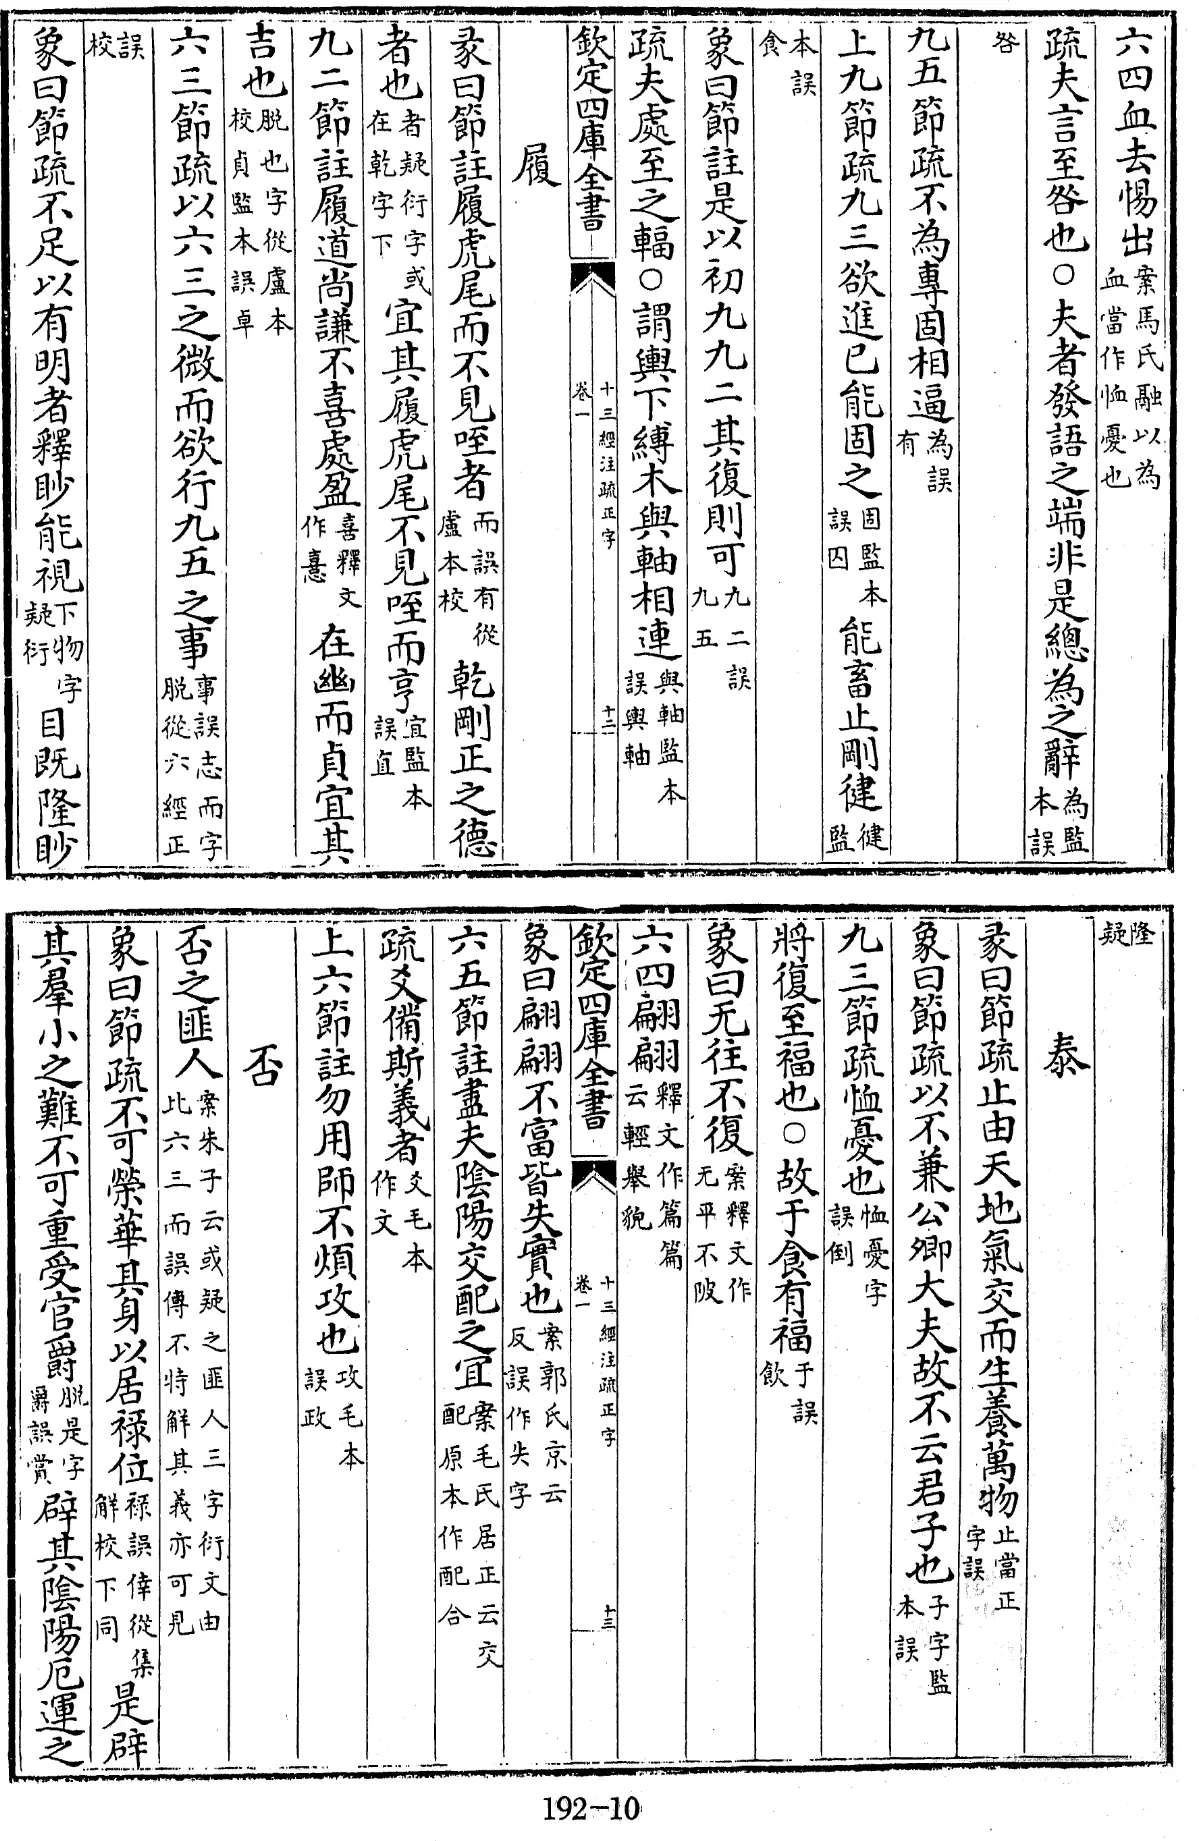 六四血去惕出案馬氏融以為血當作恤憂也
疏夫言至咎也○夫者發語之端非是總為之辭為監本誤
咎
九五節疏不為專固相逼為誤有
上九節疏九三欲進已能固之固監本誤囚能畜止剛健健監
本誤食
象曰節註是以初九九二其復則可九二誤九五
疏夫處至之輻○謂輿下縛木與軸相連與軸監本誤輿軸
欽定四庫全書
十三經注疏正字
卷一
十二
履
彖曰節註履虎尾而不見咥者而誤有從盧本校乾剛正之德
者也者疑衍字或在乾字下宜其履虎尾不見咥而亨宜監本誤直
九二節註履道尚謙不喜處盈喜釋文作憙在幽而貞宜其
吉也脫也字從盧本校貞監本誤卓
六三節疏以六三之微而欲行九五之事事誤志而字脫從六經正
誤校
象曰節疏不足以有明者釋眇能視下物字疑衍目既隆眇
隆疑
泰
彖曰節疏止由天地氣交而生養萬物止當正字誤
象曰節疏以不兼公卿大夫故不云君子也子字監本誤
九三節疏恤憂也恤憂字誤倒
將復至福也○故于食有福于誤飲
象曰无往不復案釋文作无平不陂
六四翩翩釋文作篇篇云輕舉貌
欽定四庫全書
十三經注疏正字
卷一
十三
象曰翩翩不富皆失實也案郭氏京云反誤作失字
六五節註盡夫陰陽交配之宜案毛氏居正云交配原本作配合
疏爻備斯義者爻毛本作文
上六節註勿用師不煩攻也攻毛本誤政
否
否之匪人案朱子云或疑之匪人三字衍文由比六三而誤傳不特解其義亦可見
象曰節疏不可榮華其身以居祿位祿誤倖從集解校下同是辟
其羣小之難不可重受官爵脫是字爵誤賞辟其陰陽厄運之
192-10